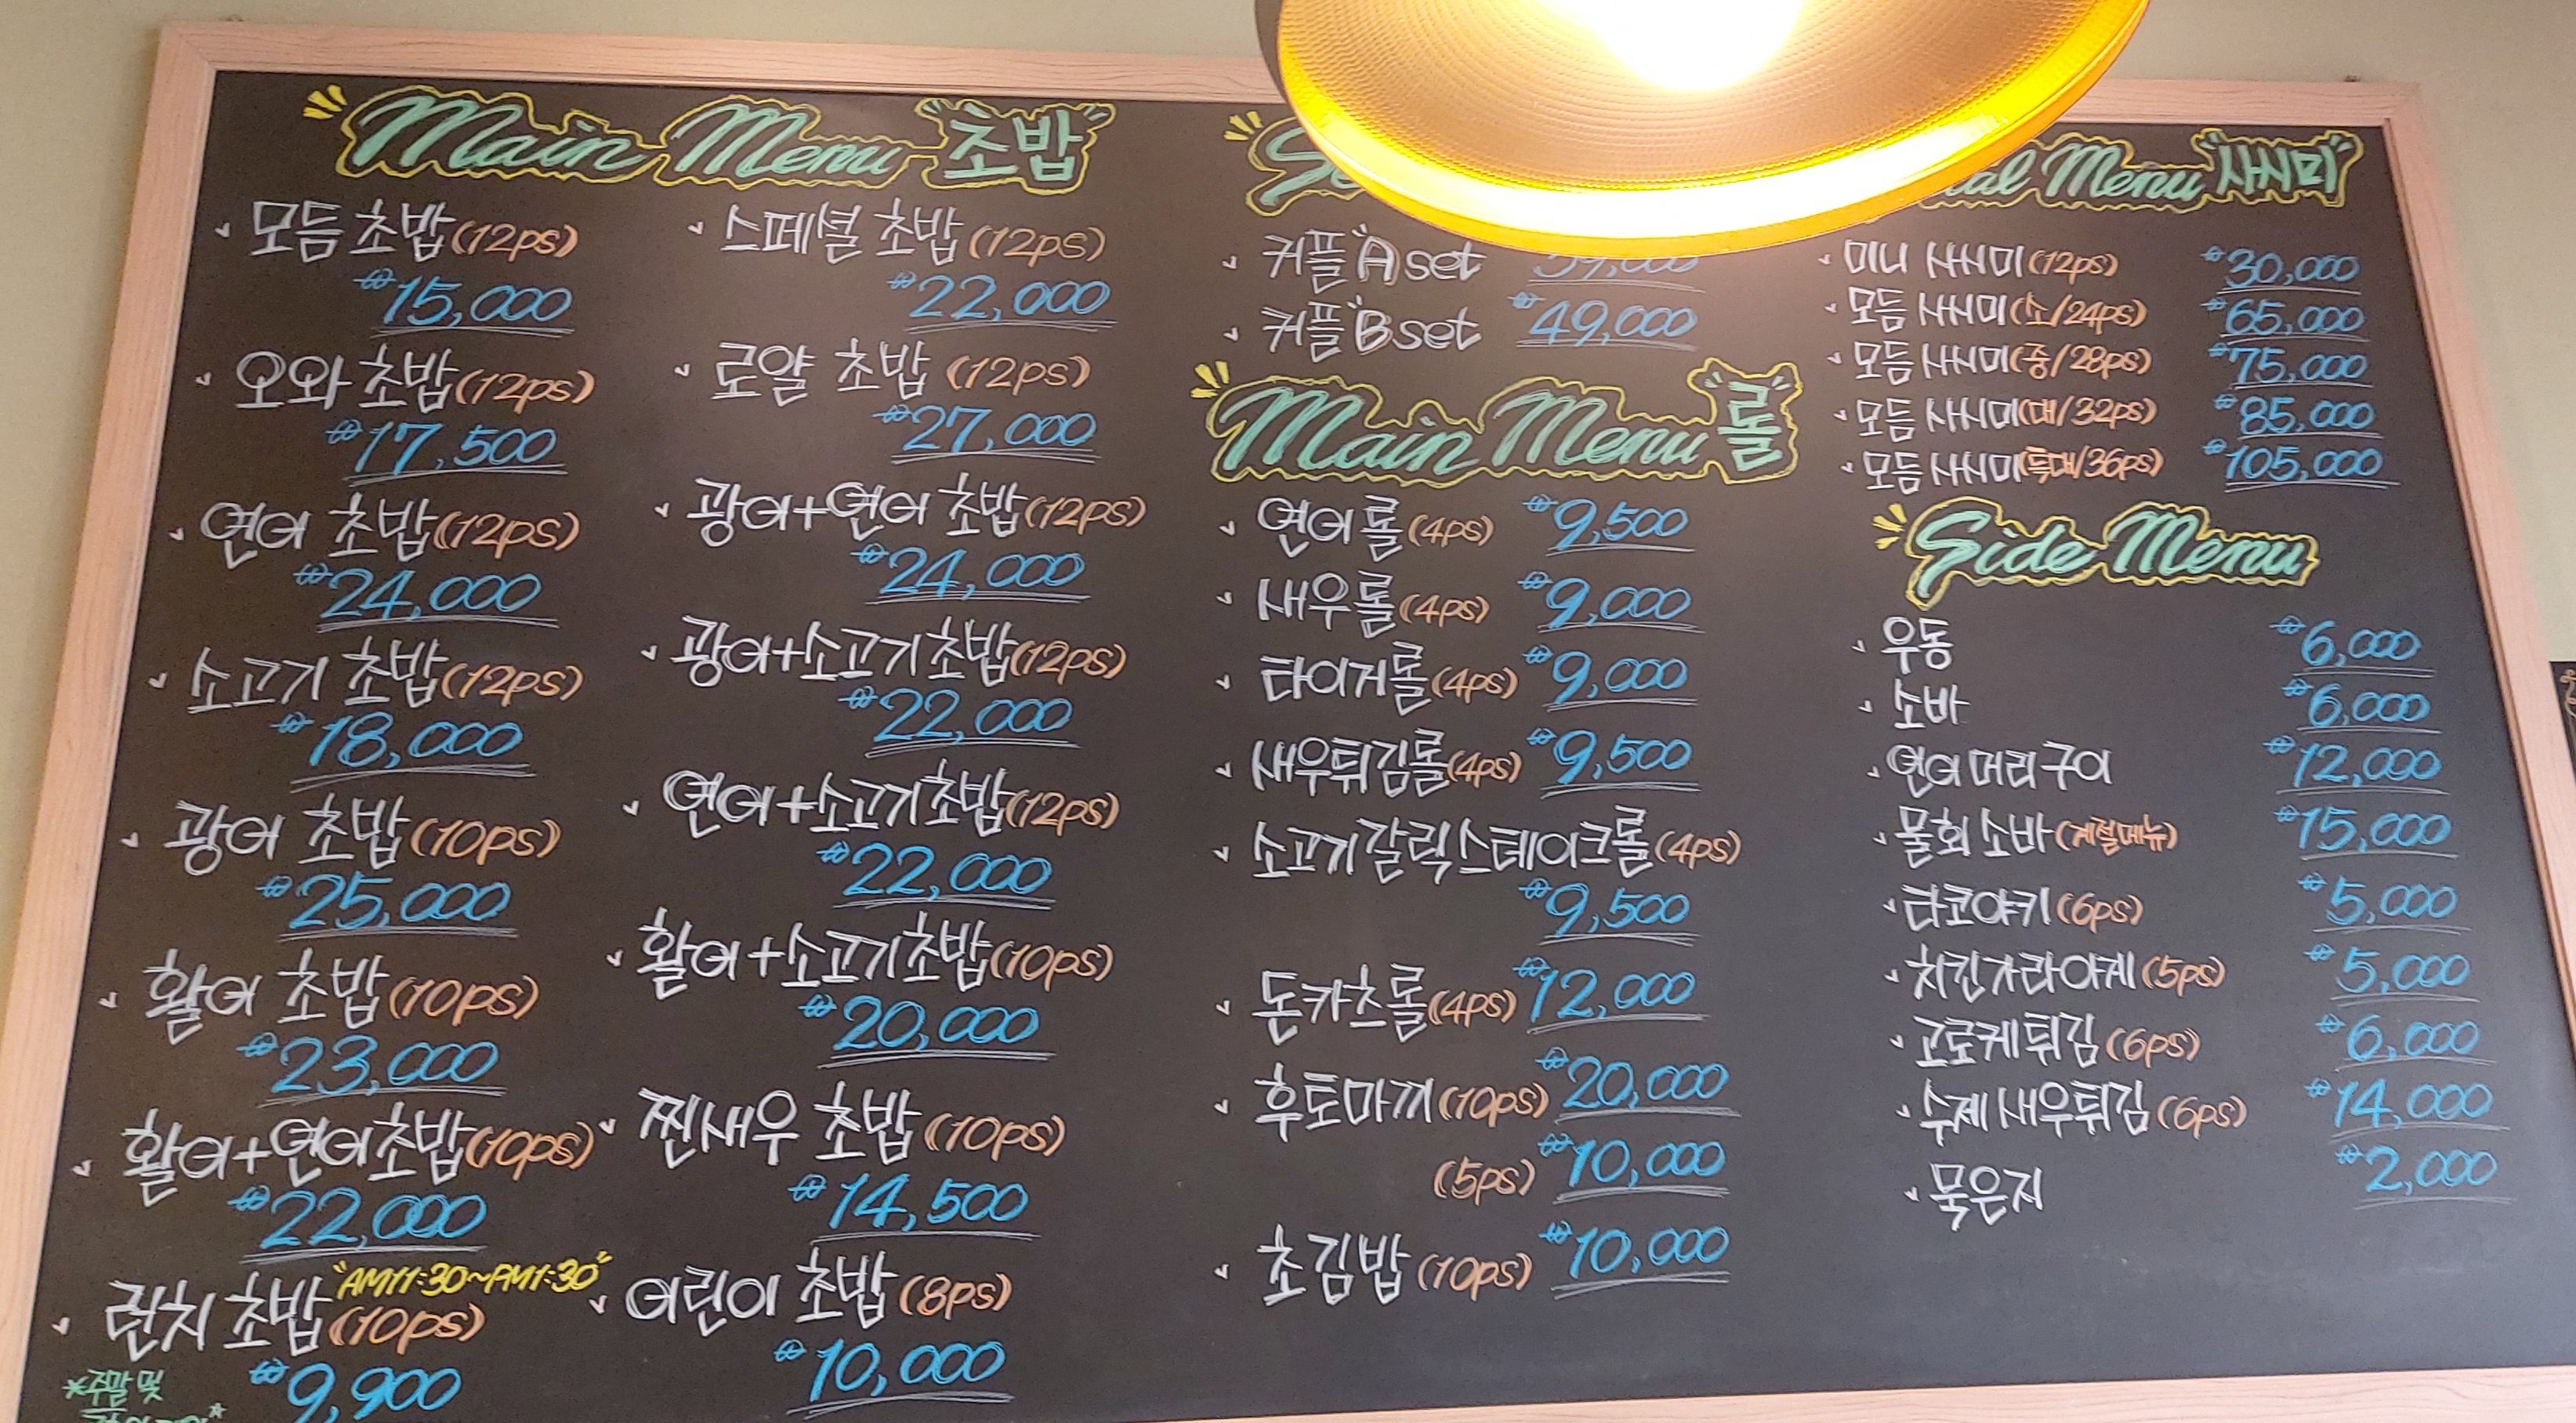 Main Menu "초밥"
모듬 초밥(12ps)
₩15,000
오와 초밥(12ps)
₩17,500
연어 초밥(12ps)
₩24,000
소고기 초밥(12ps)
₩18,000
광어 초밥(10ps)
₩25,000
활어 초밥(10ps)
₩23,000
활어+연어초밥(10ps)
₩22,000
"AM11:30~PM1:30"
런치 초밥(10ps)
₩9,900
*주말 및
스페셜 초밥(12ps)
₩22,000
로얄 초밥 (12ps)
₩27,000
광어+연어 초밥(12ps)
₩24,000
광어+소고기초밥(12ps)
₩22,000
연어+소고기초밥(12ps)
₩22,000
활어+소고기초밥(10ps)
₩20,000
찐새우 초밥(10ps)
₩14,500
어린이 초밥(8ps)
₩10,000
커플"A"set
커플"B"set ₩49,000
Main Menu "롤"
연어롤(4ps) ₩9,500
새우롤(4ps) ₩9,000
타이거롤(4ps) ₩9,000
새우튀김롤(4ps) ₩9,500
소고기갈릭스테이크롤(4ps)
₩9,500
돈카츠롤(4ps) ₩12,000
후토마끼(10ps) ₩20,000
(5ps) ₩10,000
초김밥(10ps) ₩10,000
Menu "사시미"
미니 사시미(12ps) ₩30,000
모듬 사시미(소/24ps) ₩65,000
모듬 사시미(중/28ps) ₩75,000
모듬 사시미(대/32ps) ₩85,000
모듬 사시미(특대/36ps) ₩105,000
Side Menu
우동 ₩6,000
소바 ₩6,000
연어머리구이 ₩12,000
물회 소바(계절메뉴) ₩15,000
타코야키(6ps) ₩5,000
치킨가라아게(5ps) ₩5,000
고로케튀김(6ps) ₩6,000
수제새우튀김(6ps) ₩14,000
묵은지 ₩2,000